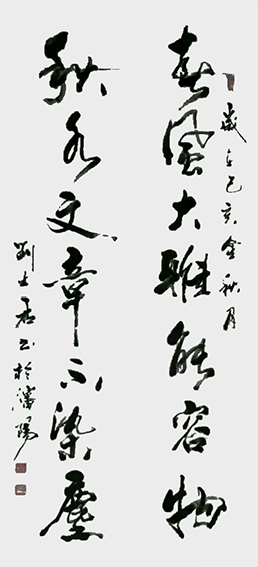 春風大雅能容物
歲在己亥金秋月
秋水文章不染塵
劉士君書於瀋陽